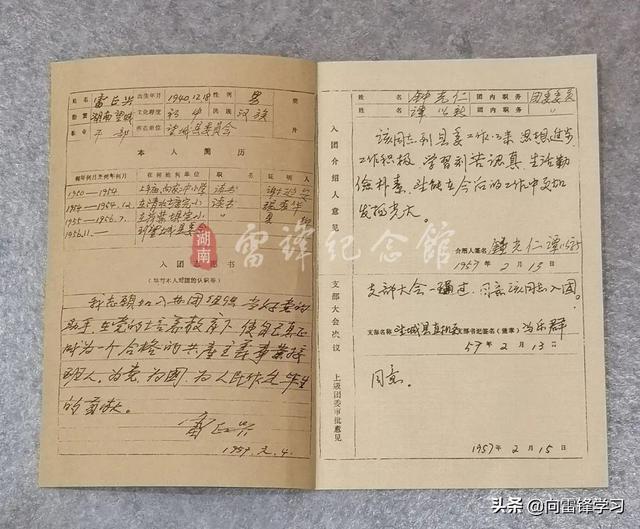 姓名 雷正兴 出生年月 1940.12.18 性别 男
籍贯 湖南望城 文化程度 初中 民族 汉族
干部 所在单位 望城县委员会
本人简历
起年何月至何年何月 在何地何单位 职 名 证明人
1950—1954 读书
1954—1954.12. 读书
1955—1956.7.
1956.11.—
入团志愿书
(填写本人对团的认识等)
我志愿加入共青团组织 当好党的
助手 在党的培养教育下 使自己真正
成为一个合格的共产主义事业接
班人。为党 为国 为人民作出毕生
的贡献。
雷正兴
1957.2.4.
姓名 钟光仁 团内职务 团委委员
姓名 团内职务 〃
入团介绍人意见
该同志到县委工作以来 思想进步
工作积极 学习刻苦认真 生活勤
俭朴素 望能在今后的工作中更加
发扬光大。
介绍人签名 钟光仁
1957年2月13日
支部大会决议
支部大会一致通过 同意该同志入团。
支部名称 望城县直机关 支部书记签名(盖章) 冯乐群
57年2月13日
上级团委审批意见
同意。
1957年2月15日
湖南雷锋纪念馆
头条 @向雷锋学习